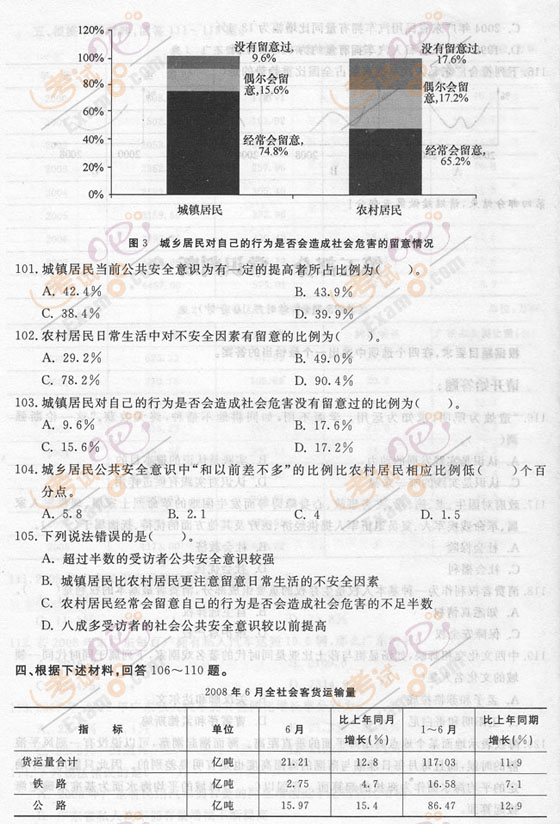 120%
100%
80%
60%
40%
20%
0%
没有留意过,
9.6%
偶尔会留
意,15.6%
经常会留意,
74.8%
没有留意过,
17.6%
偶尔会留
意,17.2%
经常会留意,
65.2%
城镇居民
农村居民
图 3 城乡居民对自己的行为是否会造成社会危害的留意情况
101. 城镇居民当前公共安全意识为有一定的提高者所占比例为( )。
A. 42.4% B. 43.9%
C. 38.4% D. 39.9%
102. 农村居民日常生活中对不安全因素有留意的比例为( )。
A. 29.2% B. 49.0%
C. 78.2% D. 90.4%
103. 城镇居民对自己的行为是否会造成社会危害没有留意过的比例为( )。
A. 9.6% B. 17.6%
C. 15.6% D. 17.2%
104. 城乡居民公共安全意识中“和以前差不多”的比例比农村居民相应比例低( )个百
分点。
A. 5.8 B. 2.1 C. 4 D. 1.5
105. 下列说法错误的是( )。
A. 超过半数的受访者公共安全意识较强
B. 城镇居民比农村居民更注意留意日常生活的不安全因素
C. 农村居民经常会留意自己的行为是否会造成社会危害的不足半数
D. 八成多受访者的社会公共安全意识较以前提高
四、根据下述材料,回答 106～110 题。
2008 年 6 月全社会客货运输量
指 标 单位 6 月 比上年同月增长(%) 1～6 月 比上年同期增长(%)
货运量合计 亿吨 21.21 12.8 117.03 11.9
铁 路 亿吨 2.75 4.7 16.58 7.1
公 路 亿吨 15.97 15.4 86.47 12.9